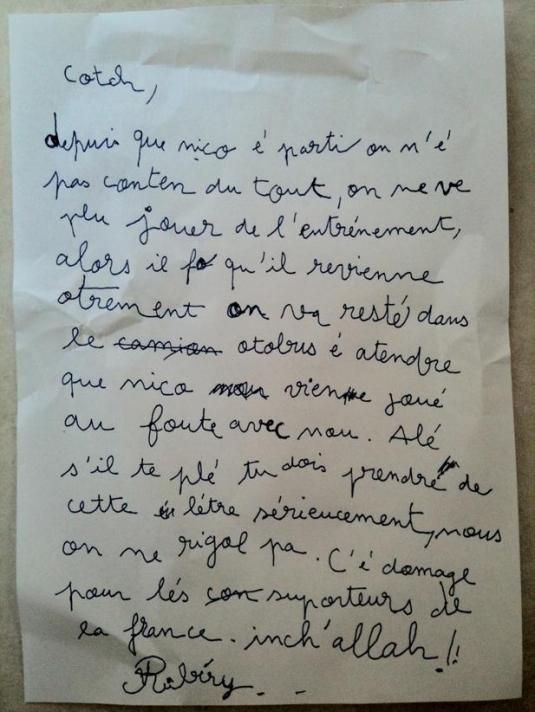 Cotch,
depuis que nico é parti on n'é
pas conten du tout, on ne ve
plu jouer de l'entrénement,
alors il fo qu'il revienne
otrement on va resté dans
le camion otobus é atendre
que nico vienne joué
au foute avec nou. Alé
s'il te plé tu dois prendre de
cette létre sérieucement, nous
on ne rigol pa. C'é domage
pour lés con suporteurs de
la france. inch'allah!!
Ribéry.